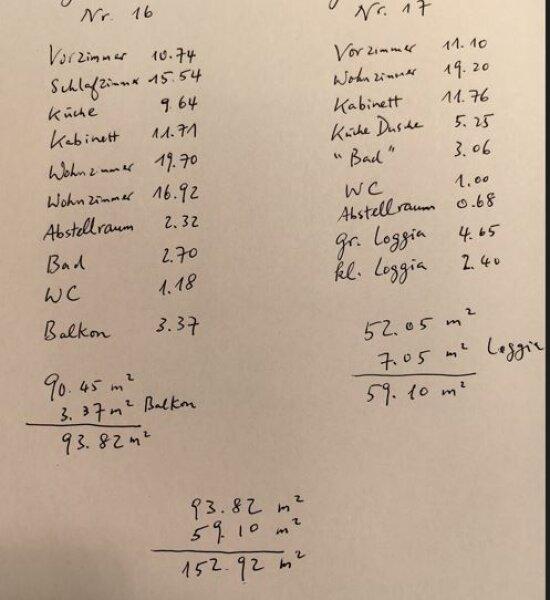 Nr. 16
Vorzimmer 10.74
Schlafzimmer 15.54
Küche 9.64
Kabinett 11.71
Wohnzimmer 19.70
Wohnzimmer 16.92
Abstellraum 2.32
Bad 2.70
WC 1.18
Balkon 3.37
90.45 m²
3.37 m² Balkon
93.82 m²
Nr. 17
Vorzimmer 11.10
Wohnzimmer 19.20
Kabinett 11.76
Küche Dusche 5.25
"Bad" 3.06
WC 1.00
Abstellraum 0.68
gr. Loggia 4.65
kl. Loggia 2.40
52.05 m²
7.05 m² Loggia
59.10 m²
93.82 m²
59.10 m²
152.92 m²